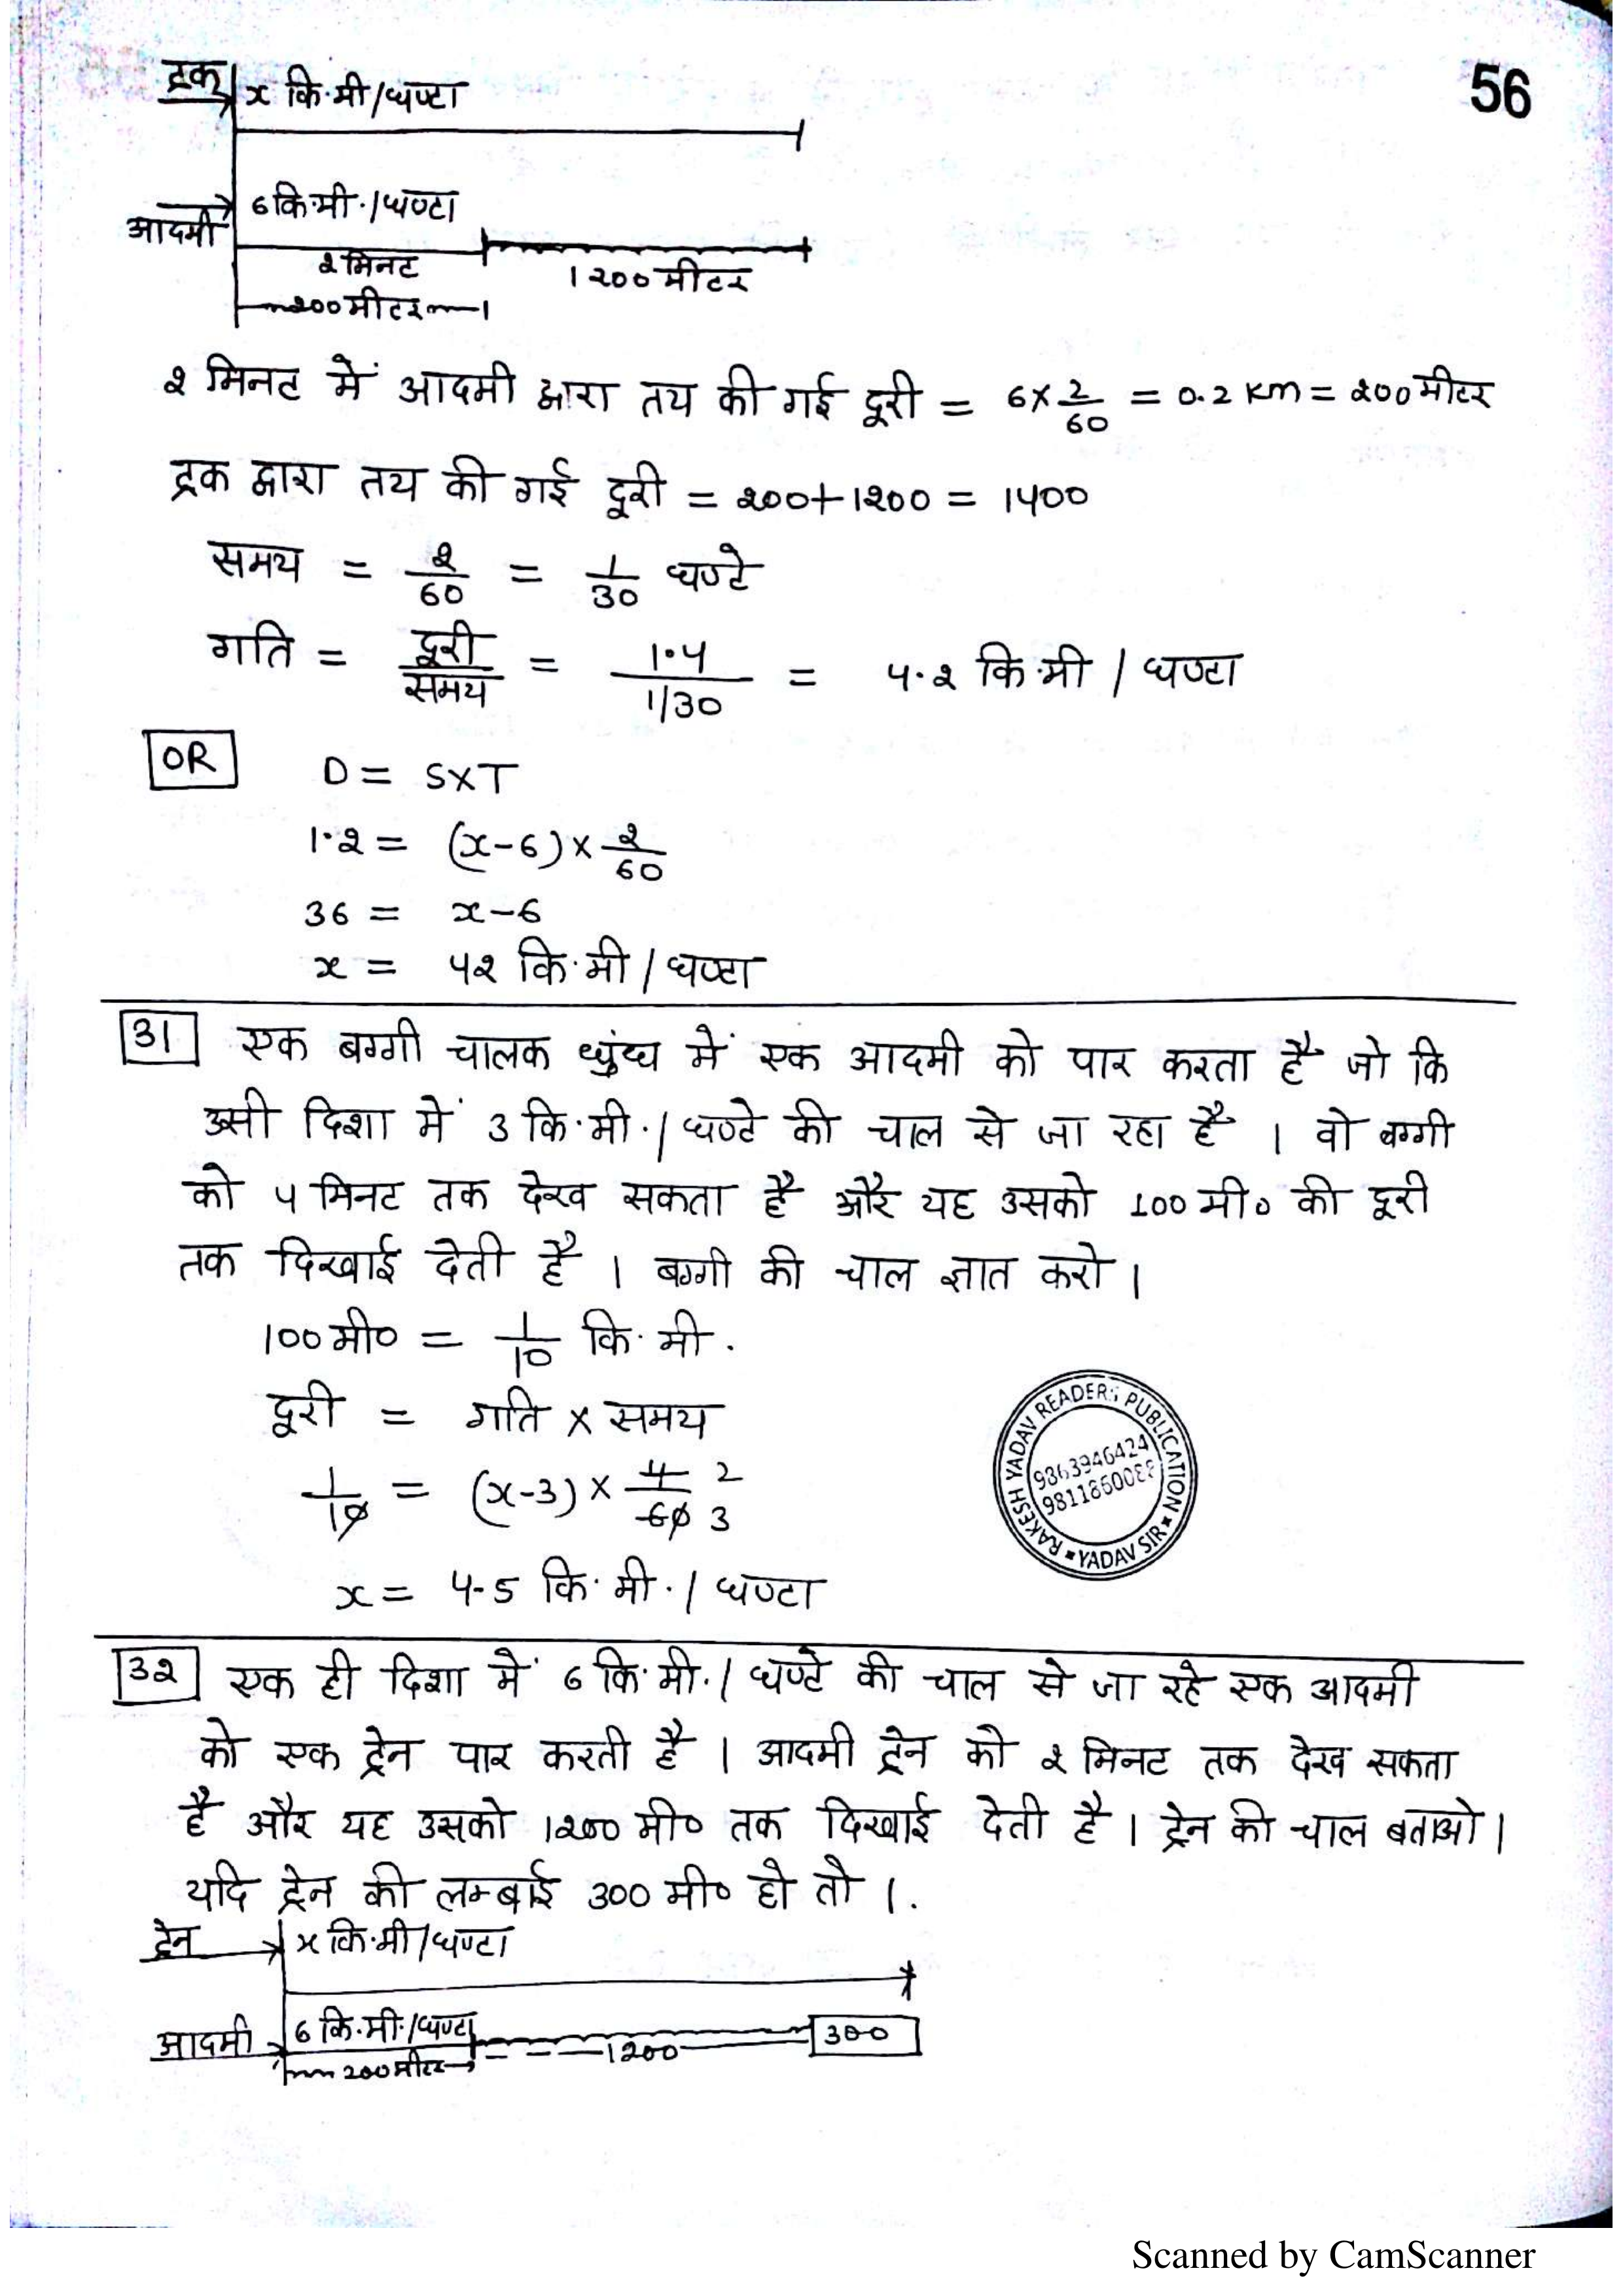 56
ट्रक x कि.मी/घण्टा
6 कि.मी./घण्टा
आदमी
2 मिनट
1200 मीटर
200 मीटर
2 मिनट में आदमी द्वारा तय की गई दूरी = 6 x 2/60 = 0.2 Km = 200 मीटर
ट्रक द्वारा तय की गई दूरी = 200+1200 = 1400
समय = 2/60 = 1/30 घण्टे
गति = दूरी/समय = 1.4/1/30 = 4.2 कि.मी / घण्टा
OR D = SxT
1.2 = (x-6) x 2/60
36 = x-6
x = 42 कि.मी / घण्टा
31 एक बग्गी चालक धुंध में एक आदमी को पार करता है जो कि
उसी दिशा में 3 कि.मी./ घण्टे की चाल से जा रहा है । वो बग्गी
को 4 मिनट तक देख सकता है और यह उसको 100 मी० की दूरी
तक दिखाई देती है । बग्गी की चाल ज्ञात करो ।
100 मी० = 1/10 कि. मी.
दूरी = गति x समय
1/10 = (x-3) x 4/60 2 3
x = 4.5 कि. मी. / घण्टा
RAKESH YADAV READERS PUBLICATION
YADAV SIR
32 एक ही दिशा में 6 कि.मी./ घण्टे की चाल से जा रहे एक आदमी
को एक ट्रेन पार करती है । आदमी ट्रेन को 2 मिनट तक देख सकता
है और यह उसको 1200 मी० तक दिखाई देती है । ट्रेन की चाल बताओ ।
यदि ट्रेन की लम्बाई 300 मी० हो तो ।.
ट्रेन x कि.मी/घण्टा
आदमी 6 कि.मी./घण्टा
200 मीटर 1200 300
Scanned by CamScanner